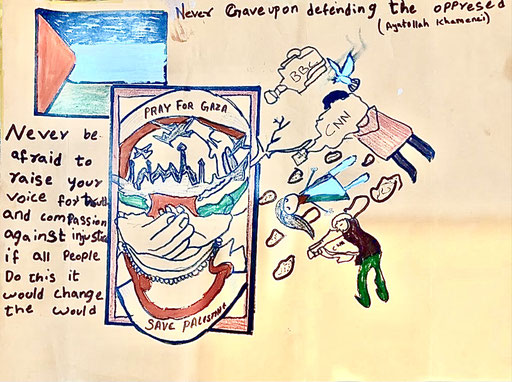 Never Gaveupon defending the oppresed
(Ayatollah Khamenei)
BBC
CNN
PRAY FOR GAZA
Never be
afraid to
raise your
voice for truth
and compassion
against injustice
if all People
Do this it
would change
the would
CNN
SAVE PALESTINE